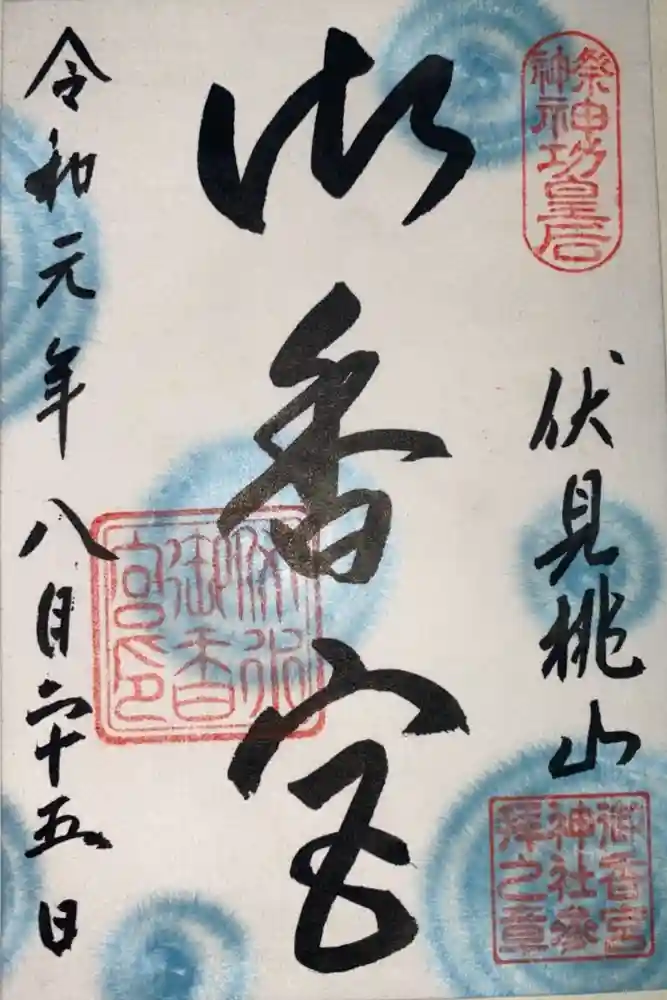 祭神
神功皇后
伏見桃山
御香宮
神社參
拜之章
御香宮
伏水
御香
宮印
令和元年八月二十五日